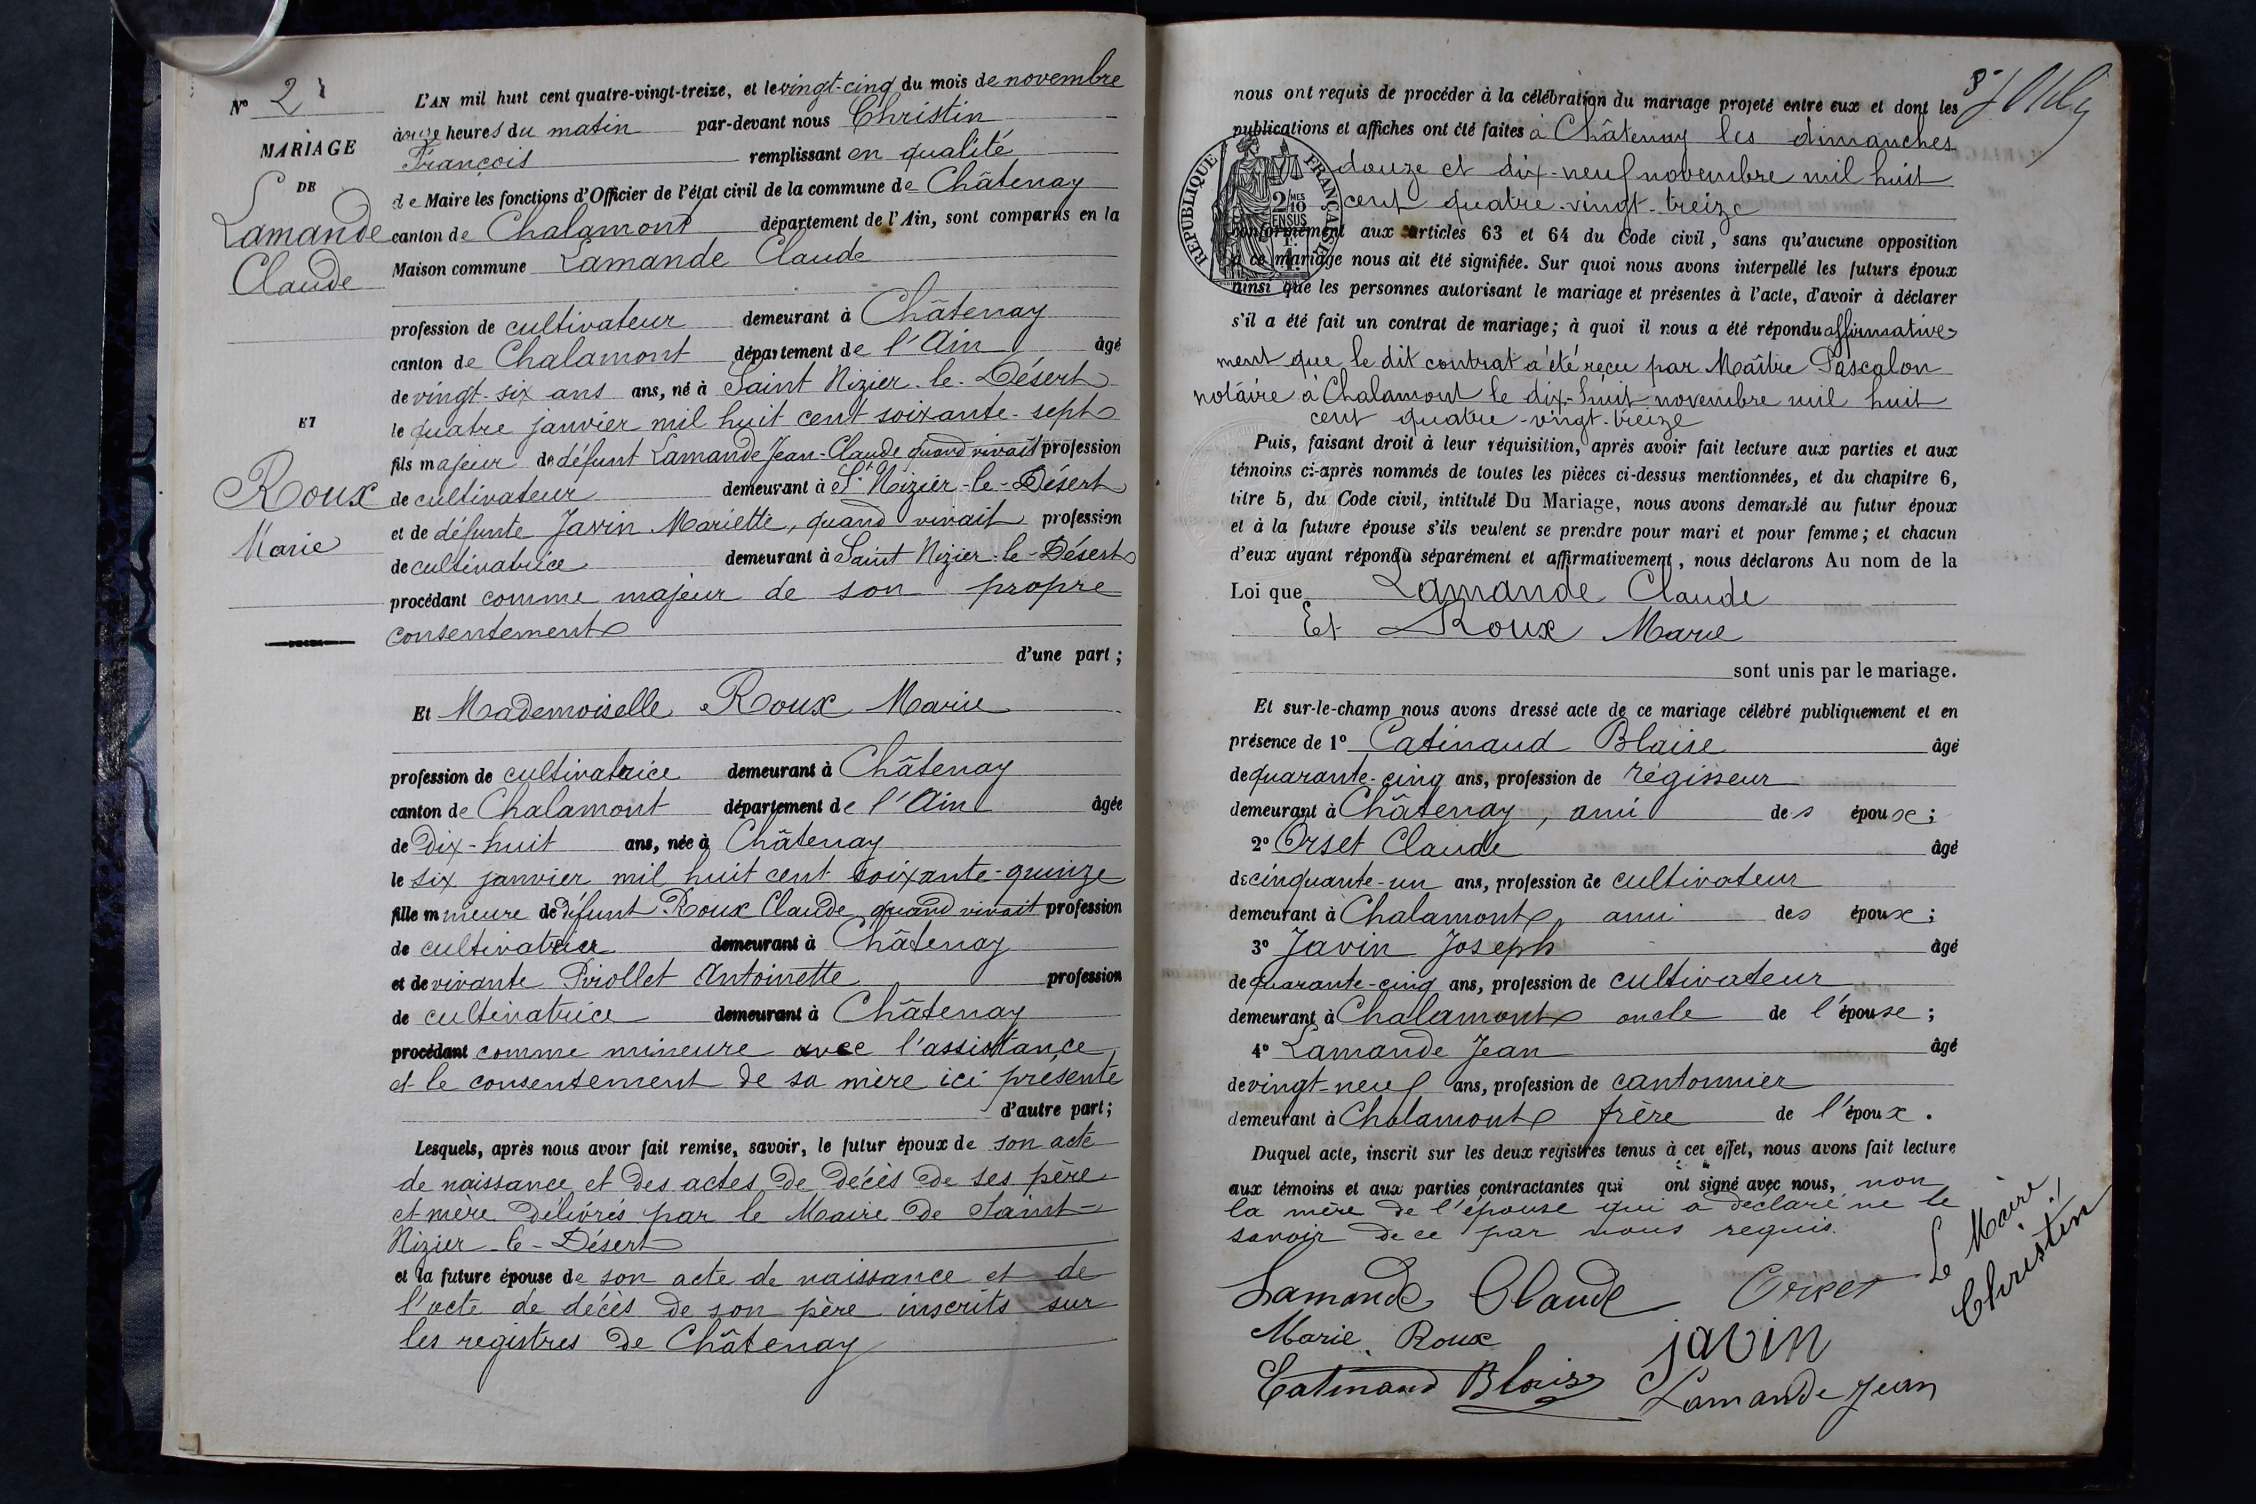 N° 2
MARIAGE
DE
Lamande
Claude
ET
Roux
Marie
L'AN mil huit cent quatre-vingt-treize, et le vingt-cinq du mois de novembre
à onze heures du matin par-devant nous Christin
François remplissant en qualité
de Maire les fonctions d'Officier de l'état civil de la commune de Châtenay
canton de Chalamont département de l'Ain, sont comparus en la
Maison commune Lamande Claude
profession de cultivateur demeurant à Châtenay
canton de Chalamont département de l'Ain âgé
de vingt-six ans ans, né à Saint Nizier-le-Désert
le quatre janvier mil huit cent soixante-sept
fils majeur de défunt Lamande Jean-Claude quand vivait profession
de cultivateur demeurant à St Nizier-le-Désert
et de défunte Javin Mariette, quand vivait profession
de cultivatrice demeurant à Saint Nizier-le-Désert
procédant comme majeur de son propre
consentement
d'une part;
Et Mademoiselle Roux Marie
profession de cultivatrice demeurant à Châtenay
canton de Chalamont département de l'Ain âgée
de Dix-huit ans, née à Châtenay
le six janvier mil huit cent soixante-quinze
fille mineure de défunt Roux Claude quand vivait profession
de demeurant à Châtenay
et de vivante Pirollet Antoinette profession
de cultivatrice demeurant à Châtenay
procédant comme mineure avec l'assistance
et le consentement de sa mère ici présente
d'autre part;
Lesquels, après nous avoir fait remise, savoir, le futur époux de son acte
de naissance et des actes de décès de ses père
et mère délivrés par le Maire de Saint-
Nizier-le-Désert
et la future épouse de son acte de naissance et de
l'acte de décès de son père inscrits sur
les registres de Châtenay
nous ont requis de procéder à la célébration du mariage projeté entre eux et dont les
publications et affiches ont été faites à Châtenay les dimanches
douze et dix-neuf novembre mil huit
cent quatre-vingt-treize
REPUBLIQUE FRANÇAISE
2/10 MES
EN SUS
conformément aux articles 63 et 64 du Code civil, sans qu'aucune opposition
à ce mariage nous ait été signifiée. Sur quoi nous avons interpellé les futurs époux
ainsi que les personnes autorisant le mariage et présentes à l'acte, d'avoir à déclarer
s'il a été fait un contrat de mariage; à quoi il nous a été répondu affirmative-
ment que le dit contrat a été reçu par Maître Pascalon
notaire à Chalamont le dix-huit novembre mil huit
cent quatre-vingt-treize
Puis, faisant droit à leur réquisition, après avoir fait lecture aux parties et aux
témoins ci-après nommés de toutes les pièces ci-dessus mentionnées, et du chapitre 6,
titre 5, du Code civil, intitulé Du Mariage, nous avons demandé au futur époux
et à la future épouse s'ils veulent se prendre pour mari et pour femme; et chacun
d'eux ayant répondu séparément et affirmativement, nous déclarons Au nom de la
Loi que Lamande Claude
Et Roux Marie
sont unis par le mariage.
Et sur-le-champ nous avons dressé acte de ce mariage célébré publiquement et en
présence de 1° Catinaud Blaise âgé
de quarante-cinq ans, profession de régisseur
demeurant à Châtenay, ami des époux;
2° Orset Claude âgé
de cinquante-un ans, profession de cultivateur
demeurant à Chalamont, ami des époux;
3° Javin Joseph âgé
de quarante-cinq ans, profession de cultivateur
demeurant à Chalamont oncle de l'épouse;
4° Lamande Jean âgé
de vingt-neuf ans, profession de cantonnier
demeurant à Chalamont frère de l'époux.
Duquel acte, inscrit sur les deux registres tenus à cet effet, nous avons fait lecture
aux témoins et aux parties contractantes qui ont signé avec nous, non
la mère de l'épouse qui a déclaré ne le
savoir de ce par nous requis.
Le Maire,
Christin
Lamande Claude Orset
Marie Roux javin
Catinaud Blaise Lamande Jean